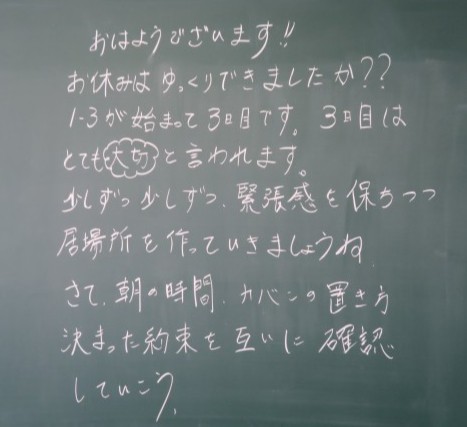 おはようございます!!
お休みはゆっくりできましたか??
1-3が始まって3日目です。3日目は
とても大切と言われます。
少しずつ少しずつ、緊張感を保ちつつ
居場所を作っていきましょうね
さて、朝の時間、カバンの置き方
決まった約束を互いに確認
していこう、